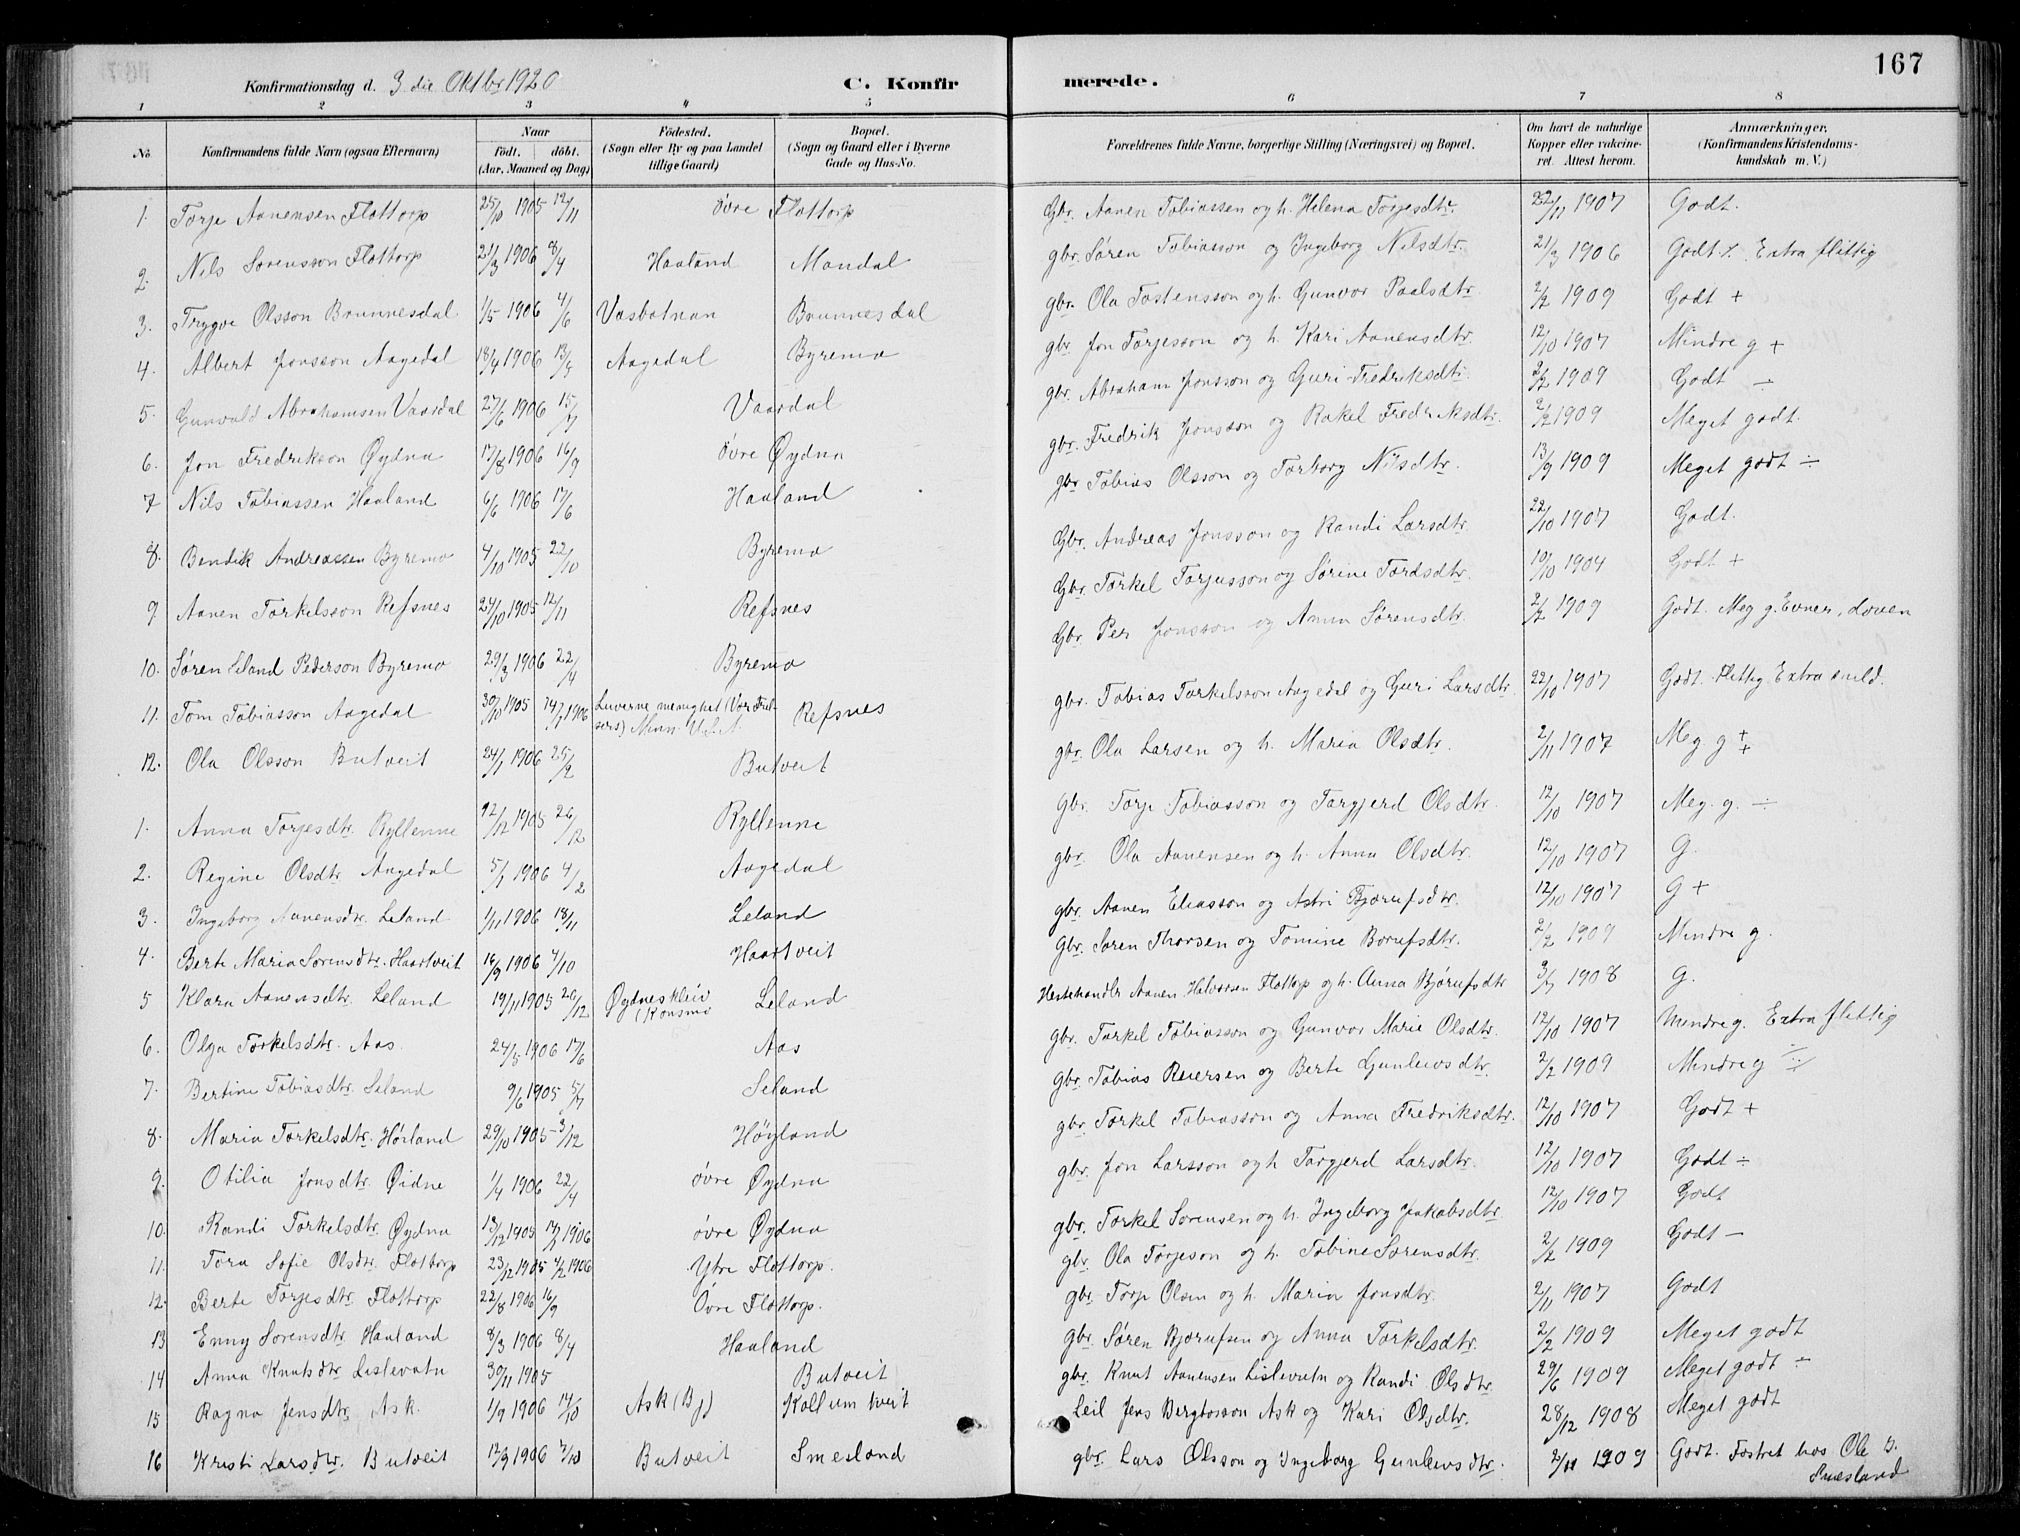 167
Konfirmationsdag d. 3 die Oktbr 1920 C. Konfirmerede.
1 2 3 4 5 6 7 8
No Konfirmandens fulde Navn (ogsaa Efternavn) Naar Födt. döbt. (Aar, Maaned og Dag) Födested. (Sogn eller By og paa Landet tillige Gaard) Bopæl. (Sogn og Gaard eller i Byerne Gade og Hus-No. Forældrenes fulde Navne, borgerlige Stilling (Næringsvei) og Bopæl. Om havt de naturlige Kopper eller vakcineret. Attest herom. Anmærkninger. (Konfirmandens Kristendomskundskab m. V.)
1. Torje Aanensen Flottorp 25/10 1905 12/11 övre Flottorp Gbr. Aanen Tobiassen og h. Helena Torjesdtr. 22/11 1907 Godt.
2. Nils Sørensson Flottorp 21/3 1906 8/4 Haaland Mandal gbr. Søren Tobiasson og Ingeborg Nilsdtr. 21/3 1906 Godt ⁒ Extra flittig
3. Trygve Olsson Brunnesdal 1/5 1906 4/6 Vasbotnan Brunnesdal gbr. Ola Tostensson og h. Gunvor Paalsdtr 2/2 1909 Godt +
4. Albert Jonsson Aagedal 18/4 1906 13/5 Aagedal Byremo gbr Jon Torjesson og h. Kari Aanensdtr. 12/10 1907 Mindre g +
5. Gunvald Abrahamsen Vaardal 27/6 1906 15/7 Vaardal gbr. Abraham Jonsson og Guri Fredriksdtr 2/2 1909 Godt ÷
6. Jon Fredrikson Øydna 17/8 1906 16/9 övre Øydna gbr. Fredrik Jonsson og Rakel Fredriksdtr. 2/2 1909 Meget godt.
7 Nils Tobiassen Haaland 6/6 1906 17/6 Haaland gbr Tobias Olsson og Torborg Nilsdtr. 13/9 1909 Meget godt ÷
8. Bendik Andreassen Byremo 4/10 1905 22/10 Byremo Gbr. Andreas Jonsson og Randi Larsdtr. 22/10 1907 Godt.
9. Aanen Torkelsson Refsnes 24/10 1905 12/11 Refsnes Gbr. Torkel Torjusson og Sørine Tordsdtr. 10/10 1904 Godt +
10. Søren Leland Pederson Byremo 29/3 1906 22/4 Byremo Gbr. Per Jonsson og Anna Sørensdtr. 2/2 1909 Godt. Meg g. Evner, doven
11. Tom Tobiasson Aagedal 30/10 1905 14/1 1906 Luverne menighet (Vor Frelsers) Minn. U.S.A. Refsnes gbr. Tobias Torkelsson Aagedal og Guri Larsdtr. 22/10 1907 Godt. Flittig Extra snild.
12. Ola Olsson Butveit 24/1 1906 25/2 Butveit gbr. Ola Larsen og h. Maria Olsdtr. 2/11 1907 Meg. g + +
1. Anna Torjesdtr. Ryllenne 12/12 1905 26/12 Ryllenne Gbr. Torje Tobiasson og Torgjerd Olsdtr. 12/10 1907 Meg. g. ÷
2. Regine Olsdtr. Aagedal 5/1 1906 4/2 Aagedal gbr. Ola Aanensen og h. Anna Olsdtr. 12/10 1907 G.
3. Ingeborg Aanensdtr. Leland 1/11 1906 18/11 Leland gbr. Aanen Eliasson og Astri Bjørufsdtr. 12/10 1907 G +
4. Berte Maria Sørensdtr. Haartveit 16/9 1906 4/10 Haartveit Gbr. Søren Thorsen og Tomine Borufsdtr. 2/2 1909 Mindre g.
5 Klara Aanensdtr. Leland 19/11 1905 26/12 Øydneskleiv (Konsmo Leland Hestehandler Aanen Halvorsen Flottorp og h. Anna Bjørufsdtr 3/7 1908 G.
6. Olga Torkelsdtr. Aas. 24/5 1906 17/6 Aas gbr. Torkel Tobiasson og Gunvor Marie Olsdtr. 12/10 1907 Mindre g. Extra flittig
7. Bertine Tobiasdtr. Leland 9/6 1905 5/7 Leland Gbr. Tobias Reiersen og Berte Gunleivsdtr. 2/2 1909 Mindre g ÷
8. Maria Torkelsdtr. Høiland 29/10 1905 3/12 Høyland gbr. Torkel Tobiasson og Anna Fredriksdtr. 12/10 1907 Godt +
9. Otilia Jonsdtr. Øidne 1/4 1906 22/4 övre Øydna gbr. Jon Larsson og h Torgjerd Larsdtr. 12/10 1907 Godt ÷
10. Randi Torkelsdtr. Øydna 13/12 1905 14/1 1906 övre Øydna gbr. Torkel Sørensen og h. Ingeborg Jakobsdtr 12/10 1907 Godt
11. Tora Sofie Olsdtr. Flottorp 23/12 1905 4/2 1906 Ytre Flottorp. gbr. Ola Torjeson og h. Tobine Sørensdtr. 2/2 1909 Godt —
12. Berte Torjesdtr Flottorp 22/8 1906 16/9 Övre Flottorp. gbr. Torje Olsen og h. Maria Jonsdtr. 2/11 1907 Godt
13 Enny Sørensdtr. Haaland 8/3 1906 8/4 Haaland gbr. Søren Bjørufsen og Anna Torkelsdtr. 2/2 1909 Meget godt
14 Anna Knutsdtr. Lislevatn 30/11 1905 Butveit gbr. Knut Aanensen Lislevatn og Randi Olsdtr. 29/6 1909 Meget godt ÷
15 Ragna Jensdtr. Ask. 1/9 1906 14/10 Ask (Bj) Kollumtveit Leil Jens Bergtosson Ask og Kari Olsdtr. 28/12 1908 Meget godt
16 Kristi Larsdtr. Butveit 12/9 1906 7/10 Butveit Smesland gbr Lars Olsson og Ingeborg Gunleivsdtr. 2/11 1909 Godt. Fostret hos Ole S. Smesland